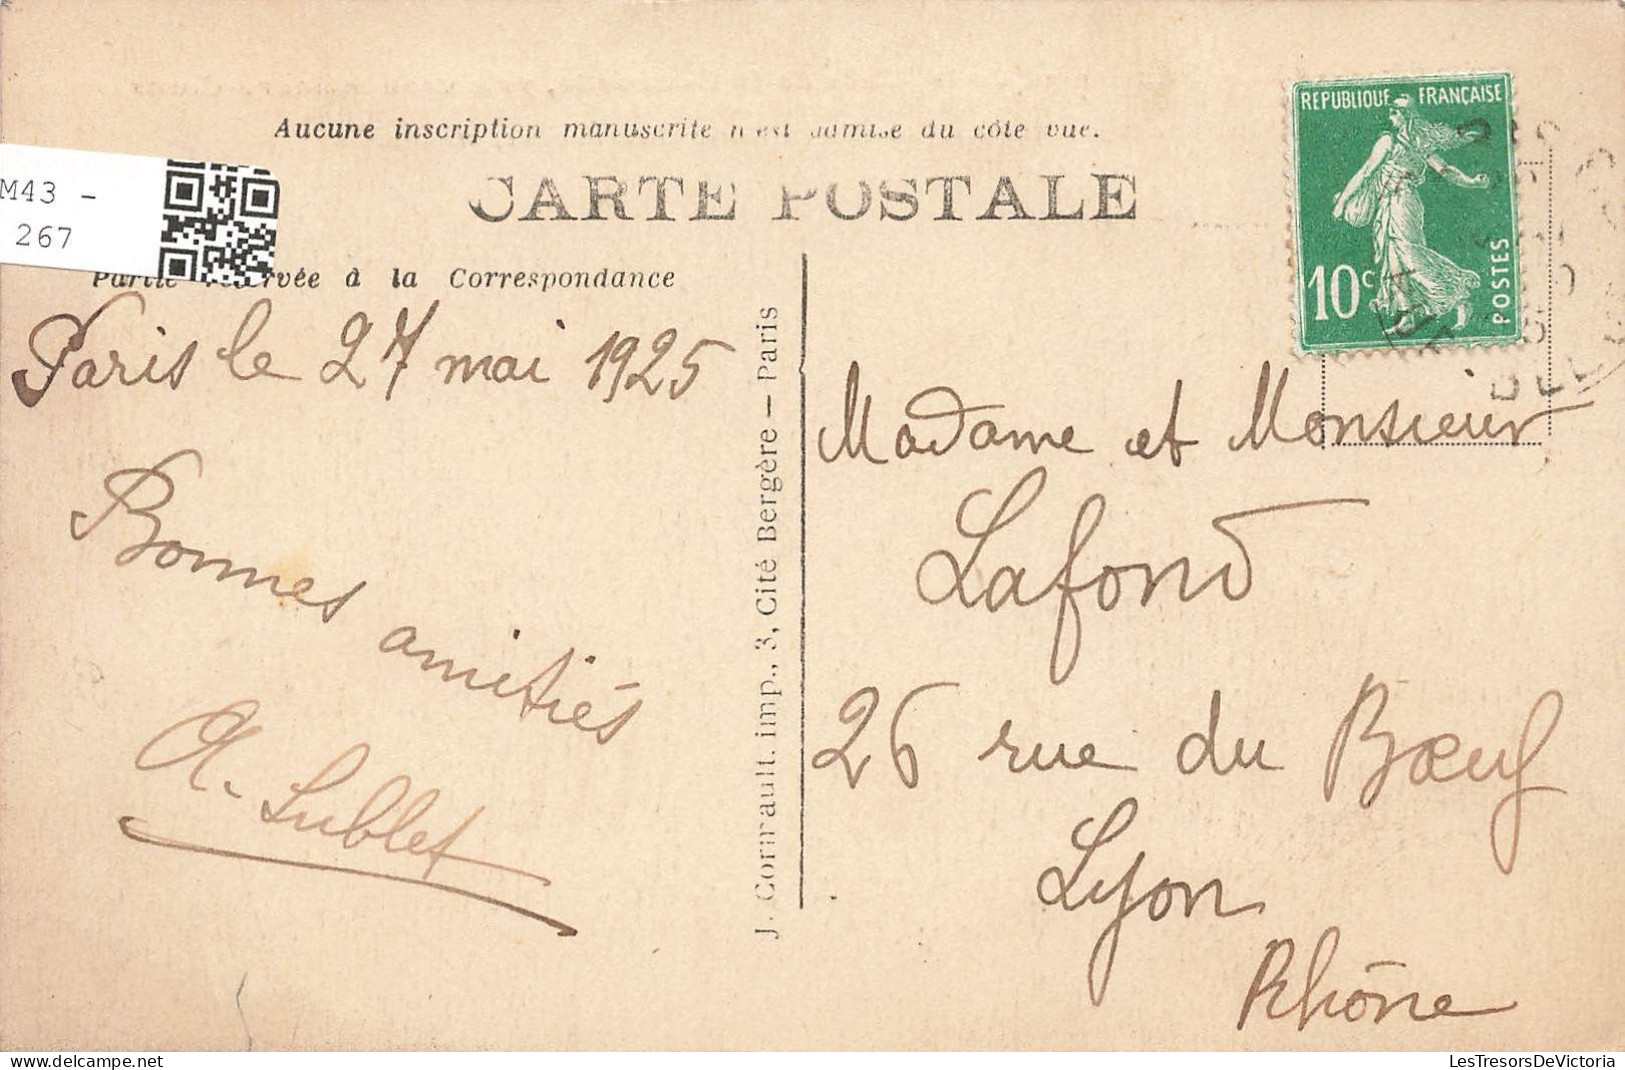 Aucune inscription manuscrite n'est admise du côté vue.
CARTE POSTALE
M43 -
267
Partie réservée à la Correspondance
Paris le 27 mai 1925
Bonnes
amitiés
A. Sublet
J. Cormault. imp., 3, Cité Bergère — Paris
REPUBLIQUE FRANÇAISE
10c
POSTES
Madame et Monsieur
Lafond
26 rue du Bœuf
Lyon
Rhône
LesTresorsDeVictoria